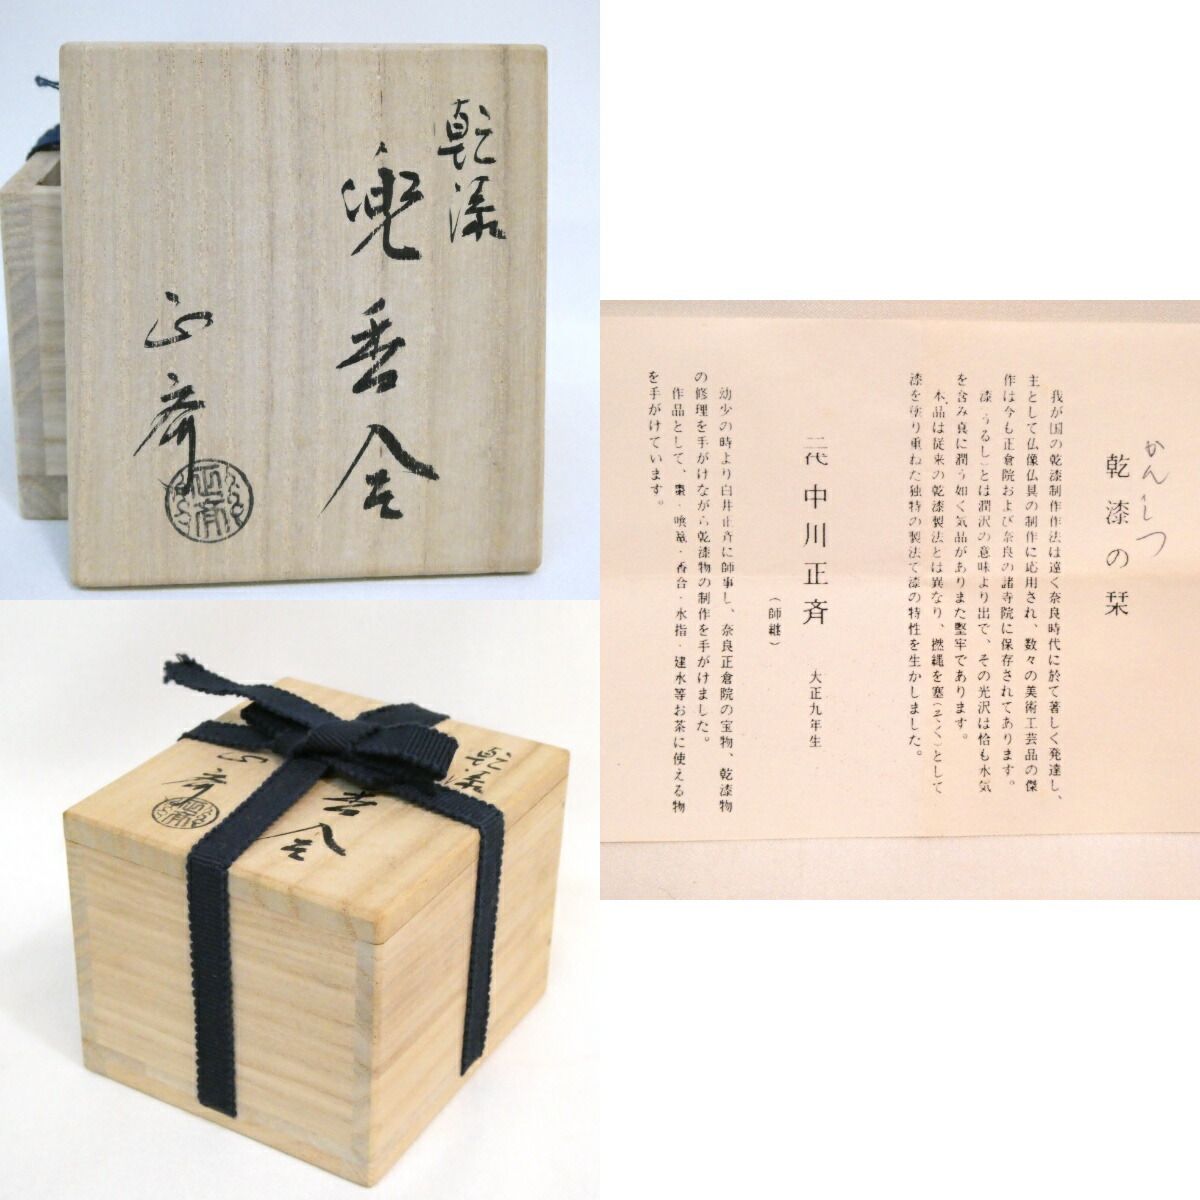 乾漆
兜香合
正斎
正斎
乾漆
香合
正斎
かんしつ
乾漆の栞
我が国の乾漆制作作法は遠く奈良時代に於て著しく発達し、
主として仏像仏具の制作に応用され、数々の美術工芸品の傑
作は今も正倉院および奈良の諸寺院に保存されてあります。
漆(うるし)とは潤沢の意味より出で、その光沢は恰も水気
を含み真に潤う如く気品がありまた堅牢であります。
本品は従来の乾漆製法とは異なり、撚縄を塞(そく)として
漆を塗り重ねた独特の製法で漆の特性を生かしました。
二代 中川正斉 大正九年生
(師継)
幼少の時より白井正斉に師事し、奈良正倉院の宝物、乾漆物
の修理を手がけながら乾漆物の制作を手がけました。
作品として、棗・喰籠・香合・水指・建水等お茶に使える物
を手がけています。